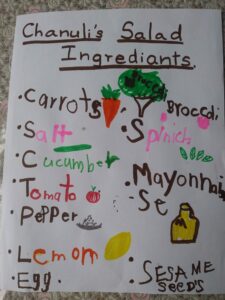 Chanuli's Salad
Ingrediants.
·Carrots
Broccoli
·Salt
·Spinich
·Cucumber
·Tomato
·Mayonnai
se
·Pepper
·Lemom
·Egg.
·SESAME
SEEDS